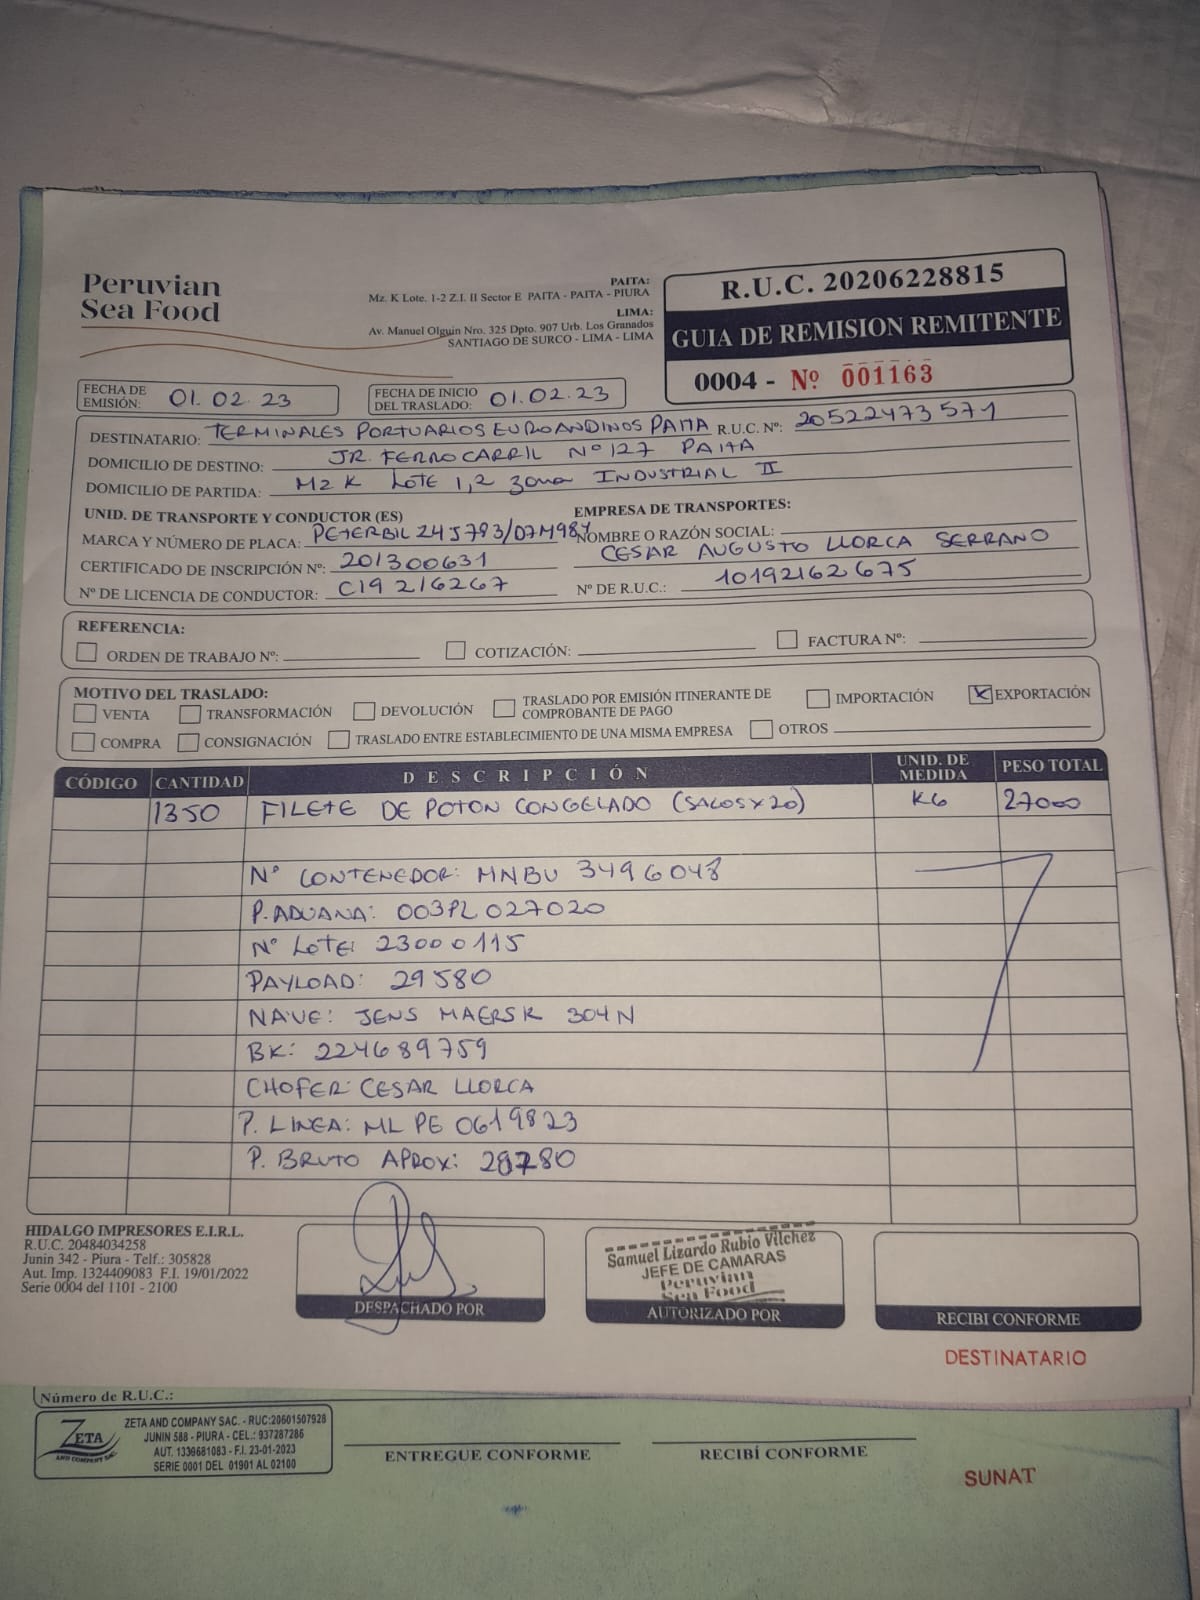 Peruvian
Sea Food
PAITA:
Mz. K Lote. 1-2 Z.I. II Sector E PAITA - PAITA - PIURA
LIMA:
Av. Manuel Olguin Nro. 325 Dpto. 907 Urb. Los Granados
SANTIAGO DE SURCO - LIMA - LIMA
R.U.C. 20206228815
GUIA DE REMISION REMITENTE
0004 - Nº 001163
FECHA DE EMISIÓN: 01.02.23
FECHA DE INICIO DEL TRASLADO: 01.02.23
DESTINATARIO: TERMINALES PORTUARIOS EUROANDINOS PAITA R.U.C. Nº: 20522473571
DOMICILIO DE DESTINO: JR. FERROCARRIL Nº 127 PAITA
DOMICILIO DE PARTIDA: MZ K LOTE 1,2 zona INDUSTRIAL II
UNID. DE TRANSPORTE Y CONDUCTOR (ES)
MARCA Y NÚMERO DE PLACA: PETERBIL 245793/D7M987
CERTIFICADO DE INSCRIPCIÓN Nº: 201300631
Nº DE LICENCIA DE CONDUCTOR: C19216267
EMPRESA DE TRANSPORTES:
NOMBRE O RAZÓN SOCIAL:
CESAR AUGUSTO LLORCA SERRANO
Nº DE R.U.C.: 10192162675
REFERENCIA:
ORDEN DE TRABAJO Nº: COTIZACIÓN: FACTURA Nº:
MOTIVO DEL TRASLADO:
VENTA TRANSFORMACIÓN DEVOLUCIÓN TRASLADO POR EMISIÓN ITINERANTE DE COMPROBANTE DE PAGO IMPORTACIÓN EXPORTACIÓN
COMPRA CONSIGNACIÓN TRASLADO ENTRE ESTABLECIMIENTO DE UNA MISMA EMPRESA OTROS
CÓDIGO CANTIDAD DESCRIPCIÓN UNID. DE MEDIDA PESO TOTAL
1350 FILETE DE POTON CONGELADO (SACOS x 20) KG 27000
Nº CONTENEDOR: MNBU 3496048
P. ADUANA: 003PL027020
Nº LOTE: 23000115
PAYLOAD: 29580
NAVE: JENS MAERSK 304N
BK: 224689759
CHOFER: CESAR LLORCA
P. LINEA: ML PE 0619823
P. BRUTO APROX: 28780
HIDALGO IMPRESORES E.I.R.L.
R.U.C. 20484034258
Junin 342 - Piura - Telf.: 305828
Aut. Imp. 1324409083 F.I. 19/01/2022
Serie 0004 del 1101 - 2100
DESPACHADO POR
Samuel Lizardo Rubio Vilchez
JEFE DE CAMARAS
Peruvian
Sea Food
AUTORIZADO POR
RECIBI CONFORME
DESTINATARIO
Número de R.U.C.:
ZETA
AND COMPANY SAC.
ZETA AND COMPANY SAC. - RUC:20601507928
JUNIN 588 - PIURA - CEL.: 937287286
AUT. 1339681083 - F.I. 23-01-2023
SERIE 0001 DEL 01901 AL 02100
ENTREGUE CONFORME
RECIBÍ CONFORME
SUNAT